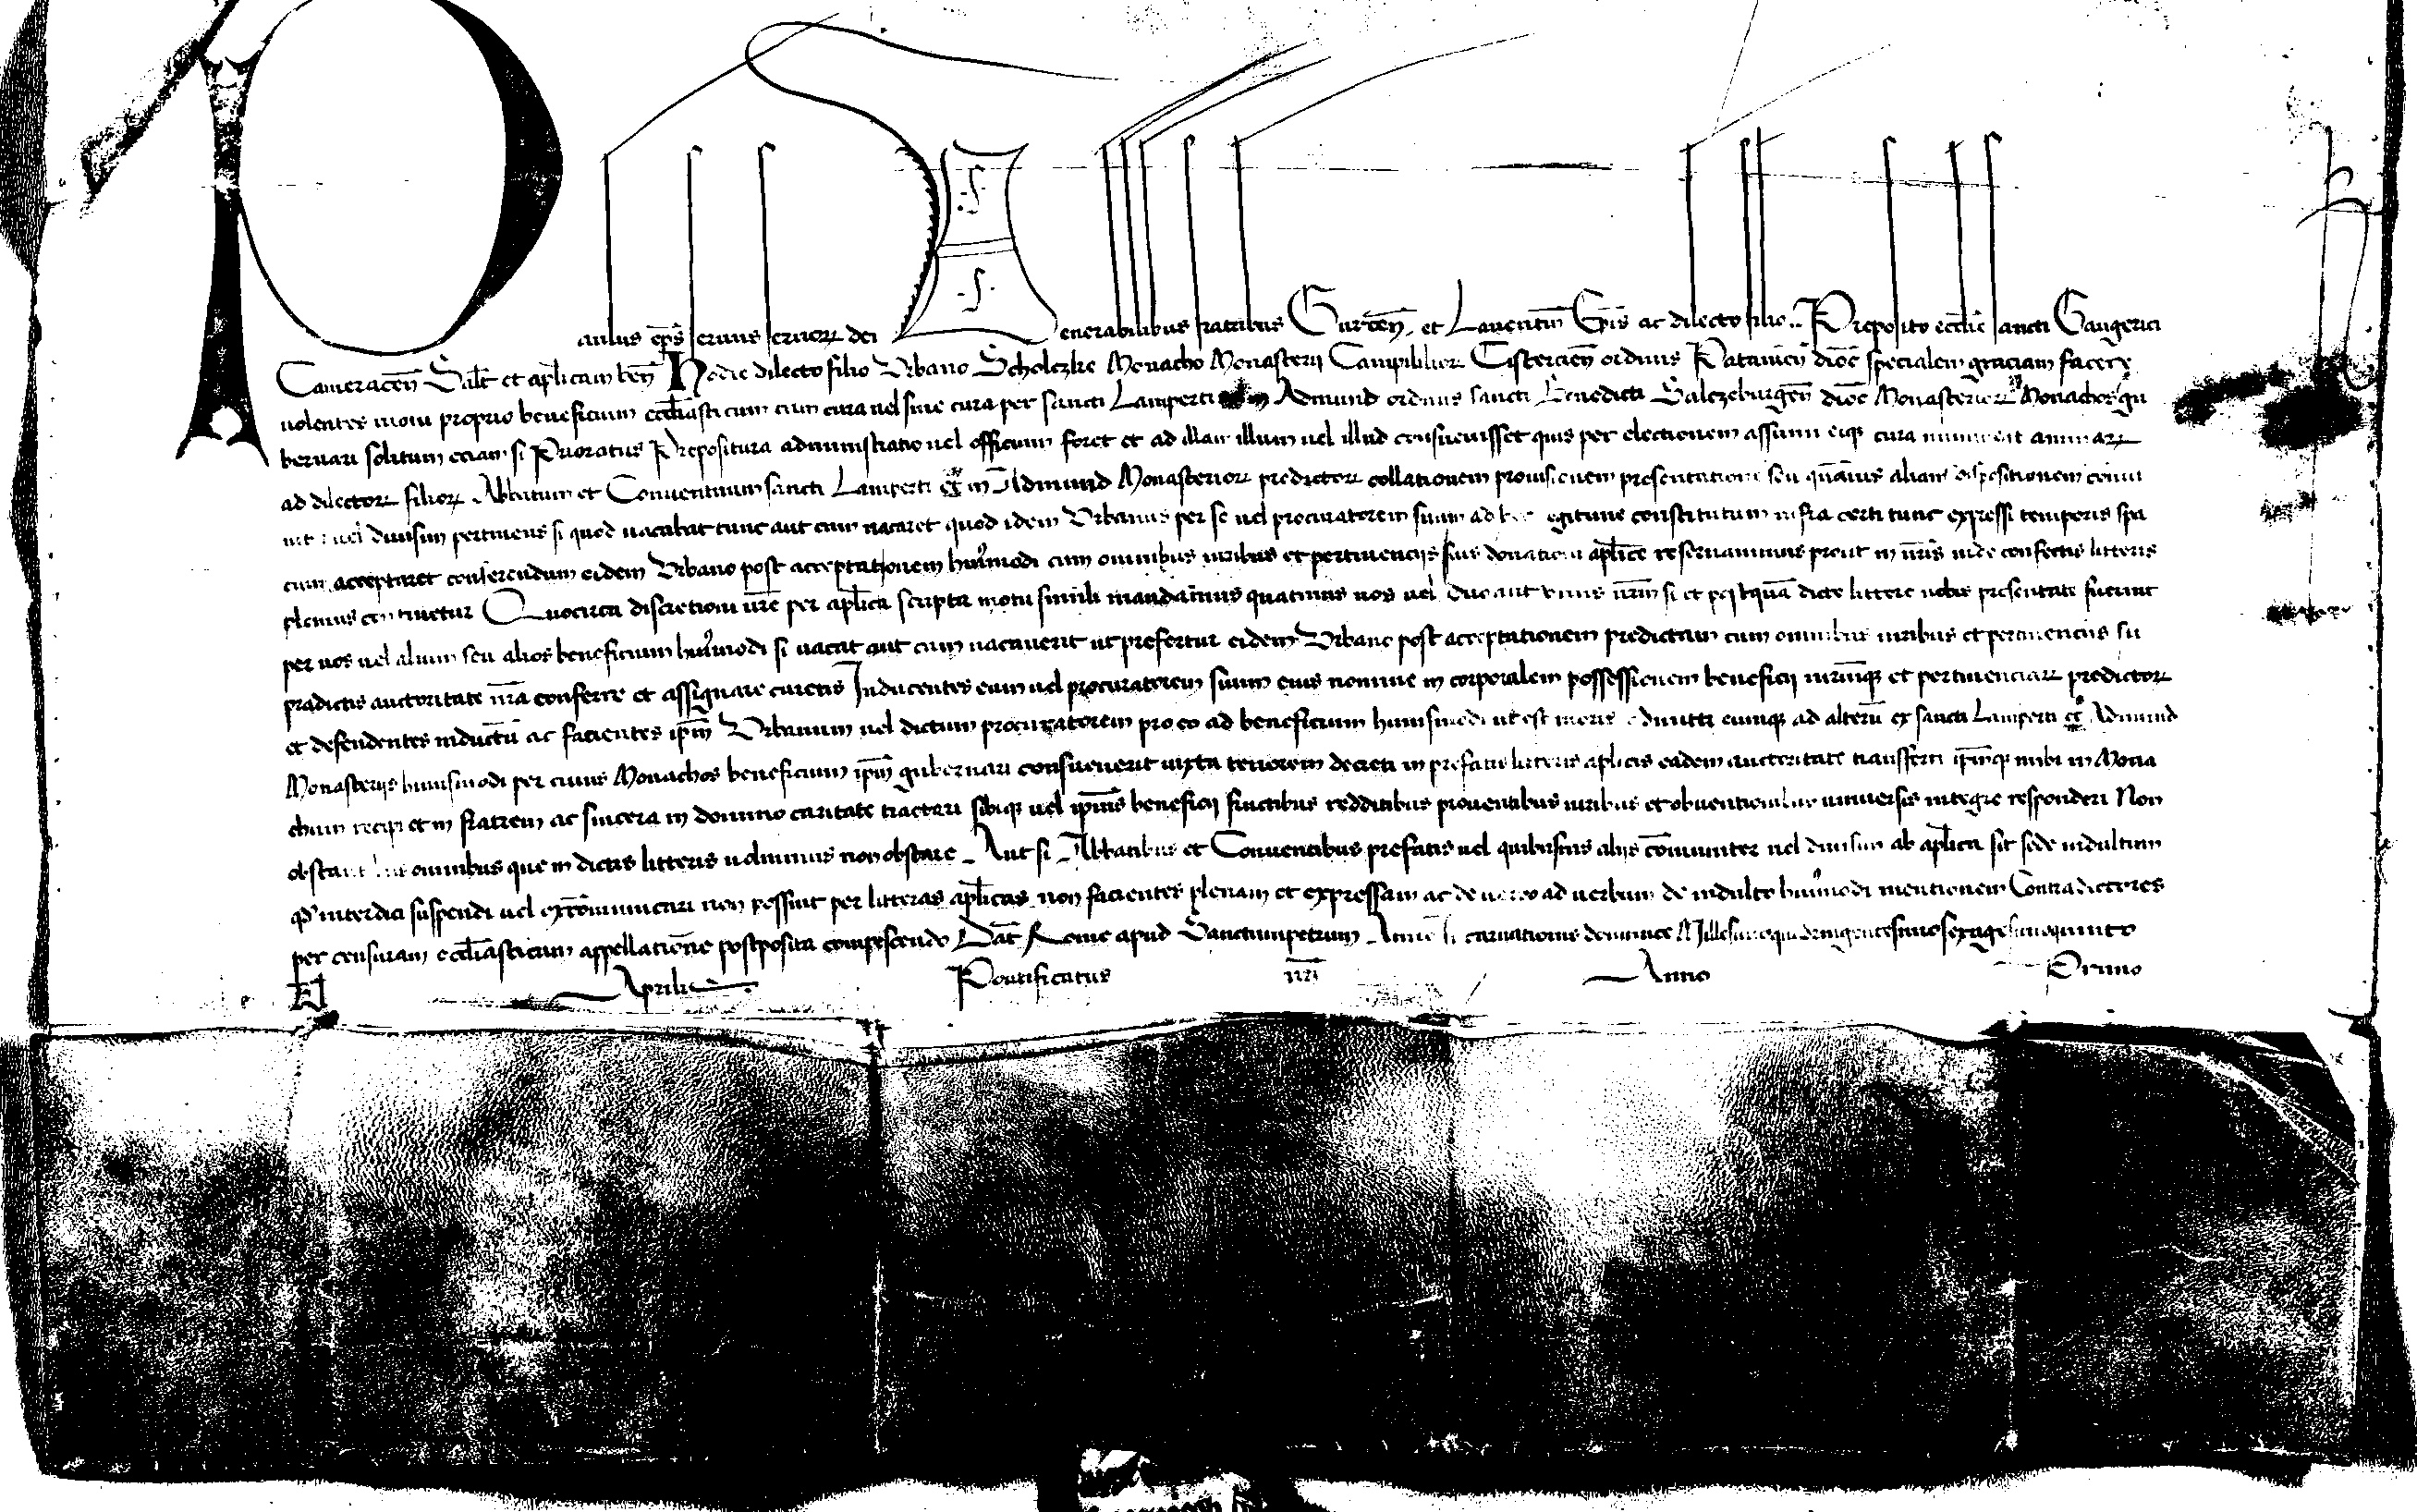 Paulus ep̄s seruus seruoꝝ dei Venerabilibus fratribus Gurceñ. et Lauentiñ Ep̄is ac dilecto filio .. Preposito eccl̄ie sancti Gaugerici
Cameraceñ Salt̄ et ap̄licam beñ Hodie dilecto filio Vrbano Scholczke Monacho Monasterij Campililioꝝ Cistercieñ ordinis Patauieñ dioc̄ specialem graciam facere
uolentes motu proprio beneficium eccl̄iasticum cum cura uel sine cura per sancti Lamperti Admund ordinis sancti Benedicti Salczeburgeñ dioc̄ Monasterioꝝ Monachos gu
bernari solitum eciam si Prioratus Prepositura administratio uel officium foret et ad illam illum uel illud consueuisset quis per electionem assumi eiqꝫ cura immineat animaꝝ
ad dilectoꝝ filioꝝ Abbatum et Conuentuum sancti Lamperti et in Admund Monasterioꝝ predictoꝝ collationem prouisionem presentationem seu quāuis aliam dispositionem comu
uel diuisim pertinens si quod uacabat tunc aut cum uacaret quod idem Vrbanus per se uel procuratorem suum ad legitime constitutum infra certi tunc expressi temporis spa
cium acceptaret conferendum eidem Vrbano post acceptationem huiꝰmodi cum omnibus iuribus et pertinencijs suis donationi ap̄lice reseruauimus prout in nr̄is inde confectis litteris
plenius continetur Quocirca discretioni ur̄e per ap̄lica scripta motu simili mandamus quatinus uos uel duo aut unus ur̄m si et postquā dicte littere uobis presentate fuerint
per uos uel alium seu alios beneficium huiꝰmodi si uacat aut cum uacauerit ut prefertur eidem Vrbano post acceptationem predictam cum omnibus iuribus et pertinencijs su
pradictis auctoritate nr̄a conferre et assignare curetis Inducentes eum uel procuratorem suum eius nomine in corporalem possessionem beneficij iuriumqꝫ et pertinenciaꝝ predictoꝝ
et defendentes inductū ac facientes ip̄m Vrbanum uel dictum procuratorem pro eo ad beneficium huiusmodi ut est moris admitti eumqꝫ ad alterū ex sancti Lamperti et Admund
Monasterijs huiusmodi per cuius Monachos beneficium ip̄m gubernari consueuerit iuxta tenorem decreti in prefatis litteris ap̄licis eadem auctoritate transferri ip̄mqꝫ inibi in Mona
chum recipi et in fratrem ac sincera in domino caritate tractari sibiqꝫ uel ip̄ius beneficij fructibus redditibus prouentibus iuribus et obuentionibus uniuersis integre responderi Non
obstantibus omnibus que in dictis litteris uolumus non obstare Aut si Abbatibus et Conuentibus prefatis uel quibusuis alijs cōmuniter uel diuisim ab ap̄lica sit sede indultum
qđ interdici suspendi uel excōmunicari non possint per litteras ap̄licas non facientes plenam et expressam ac de uerbo ad uerbum de indulto huiꝰmodi mentionem Contradictores
per censuram eccl̄iasticam appellatione postposita compescendo Dat̄ Rome apud Sanctumpetrum Anno Incarnationis dominice Millesimoquadringentesimosexagesimoquinto
Aprilis Pontificatus nr̄i Anno Primo